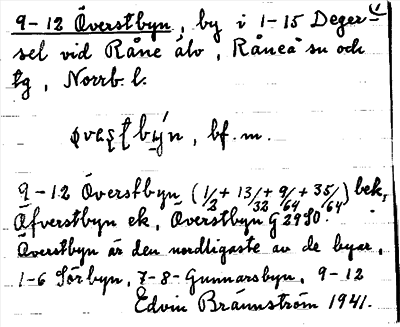 9-12 Överstbyn, by i 1-15 Deger-
sel vid Råne älv, Råneå sn och
tg, Norrb. l.
bf. m.
9-12 Överstbyn (1/2 + 13/32 + 9/64 + 35/64) bek,
Öfverstbyn ek, Överstbyn G 29 SO.
Överstbyn är den nordligaste av de byar,
1-6 Sörbyn, 7-8-Gunnarsbyn, 9-12
Edvin Brännström 1941.